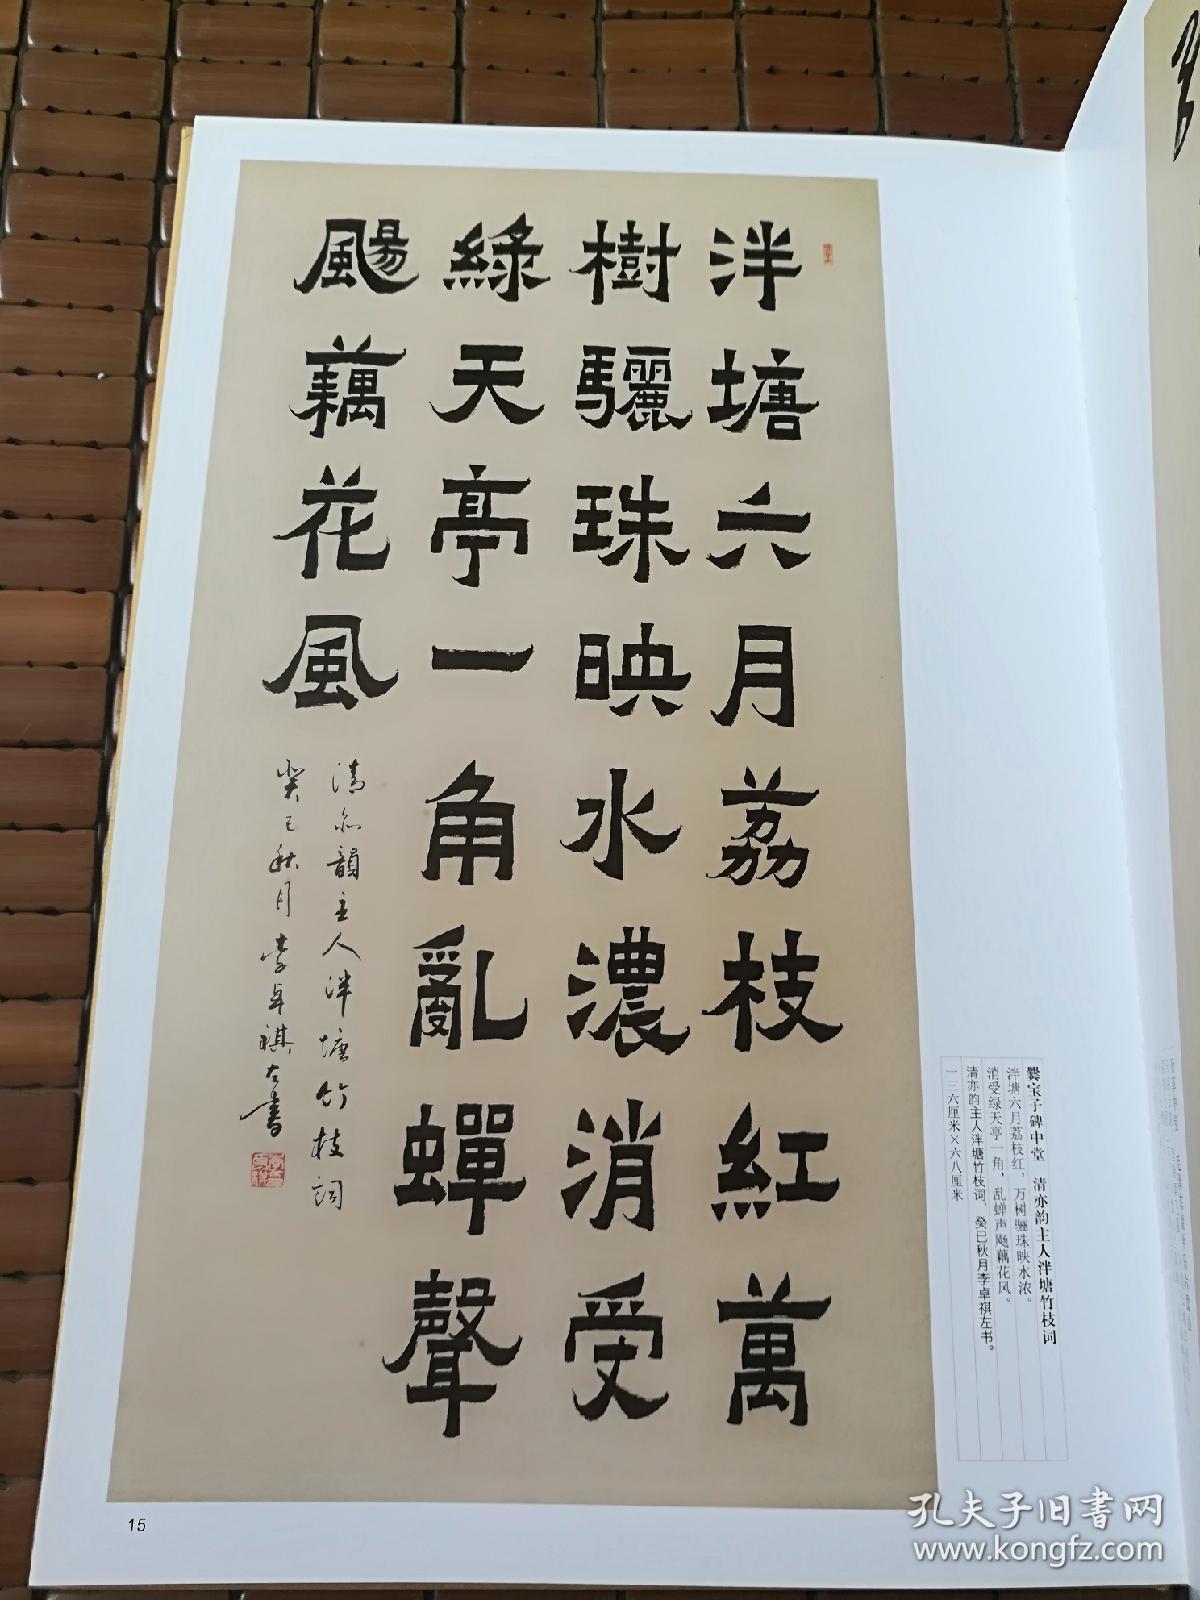 泮塘六月荔枝紅萬
樹驪珠映水濃消受
綠天亭一角亂蟬聲
颺藕花風
清亦韻主人泮塘竹枝詞
癸巳秋月李卓祺左書
爨宝子碑中堂 清亦韵主人泮塘竹枝词
泮塘六月荔枝红，万树骊珠映水浓。
消受绿天亭一角，乱蝉声飏藕花风。
清亦韵主人泮塘竹枝词，癸巳秋月李卓祺左书。
一三六厘米×六八厘米
15
孔夫子旧书网
www.kongfz.com